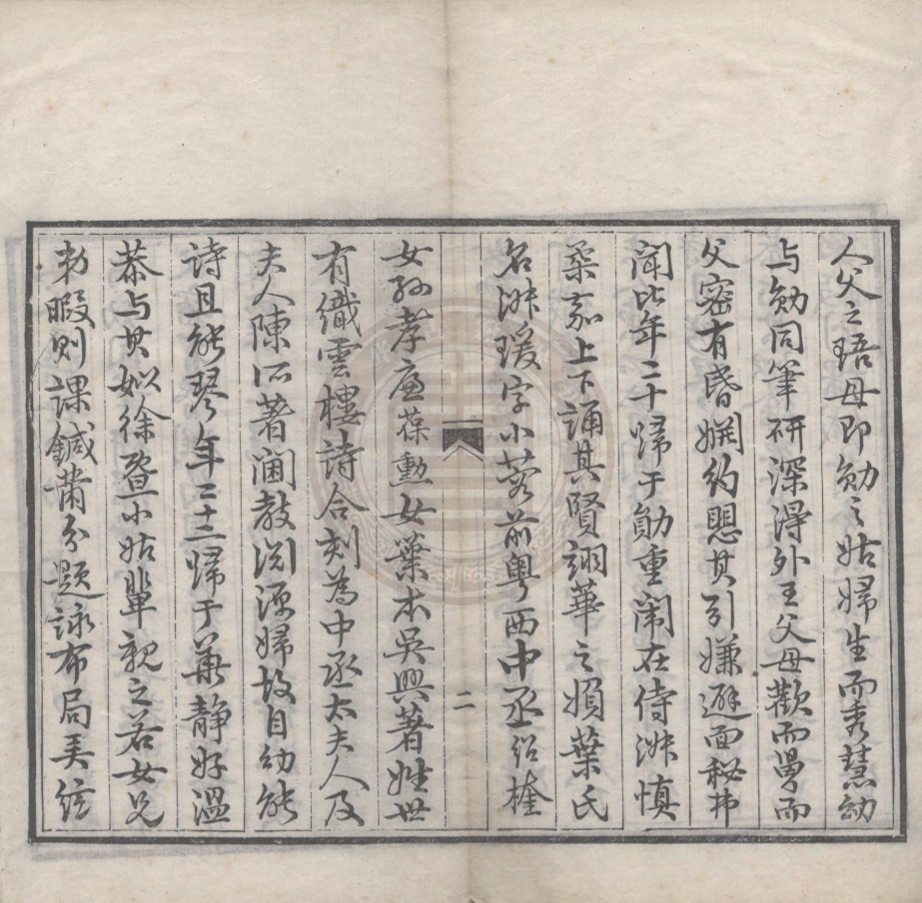 人父之琣母即勛之姑婦生而秀慧幼
与勛同筆研深得外王父母歡而舅而
父密有昏姻約嬰其引嫌避面秘弗
聞此年二十歸于勛重闈在侍淑慎
柔嘉上下誦其賢翊華之嬪葉氏
名淑瑗字小蓉前粵西中丞紹楏
女孫孝廉葆勳女葉本吳興著姓世
有織雲樓詩合刻為中丞太夫人及
夫人陳所著闺教淵源婦故自幼能
詩且能琴年二十三歸于華靜好溫
恭与其姒徐暨小姑輩親之若女兄
勅暇則課鍼黹分題詠布局美弦
二